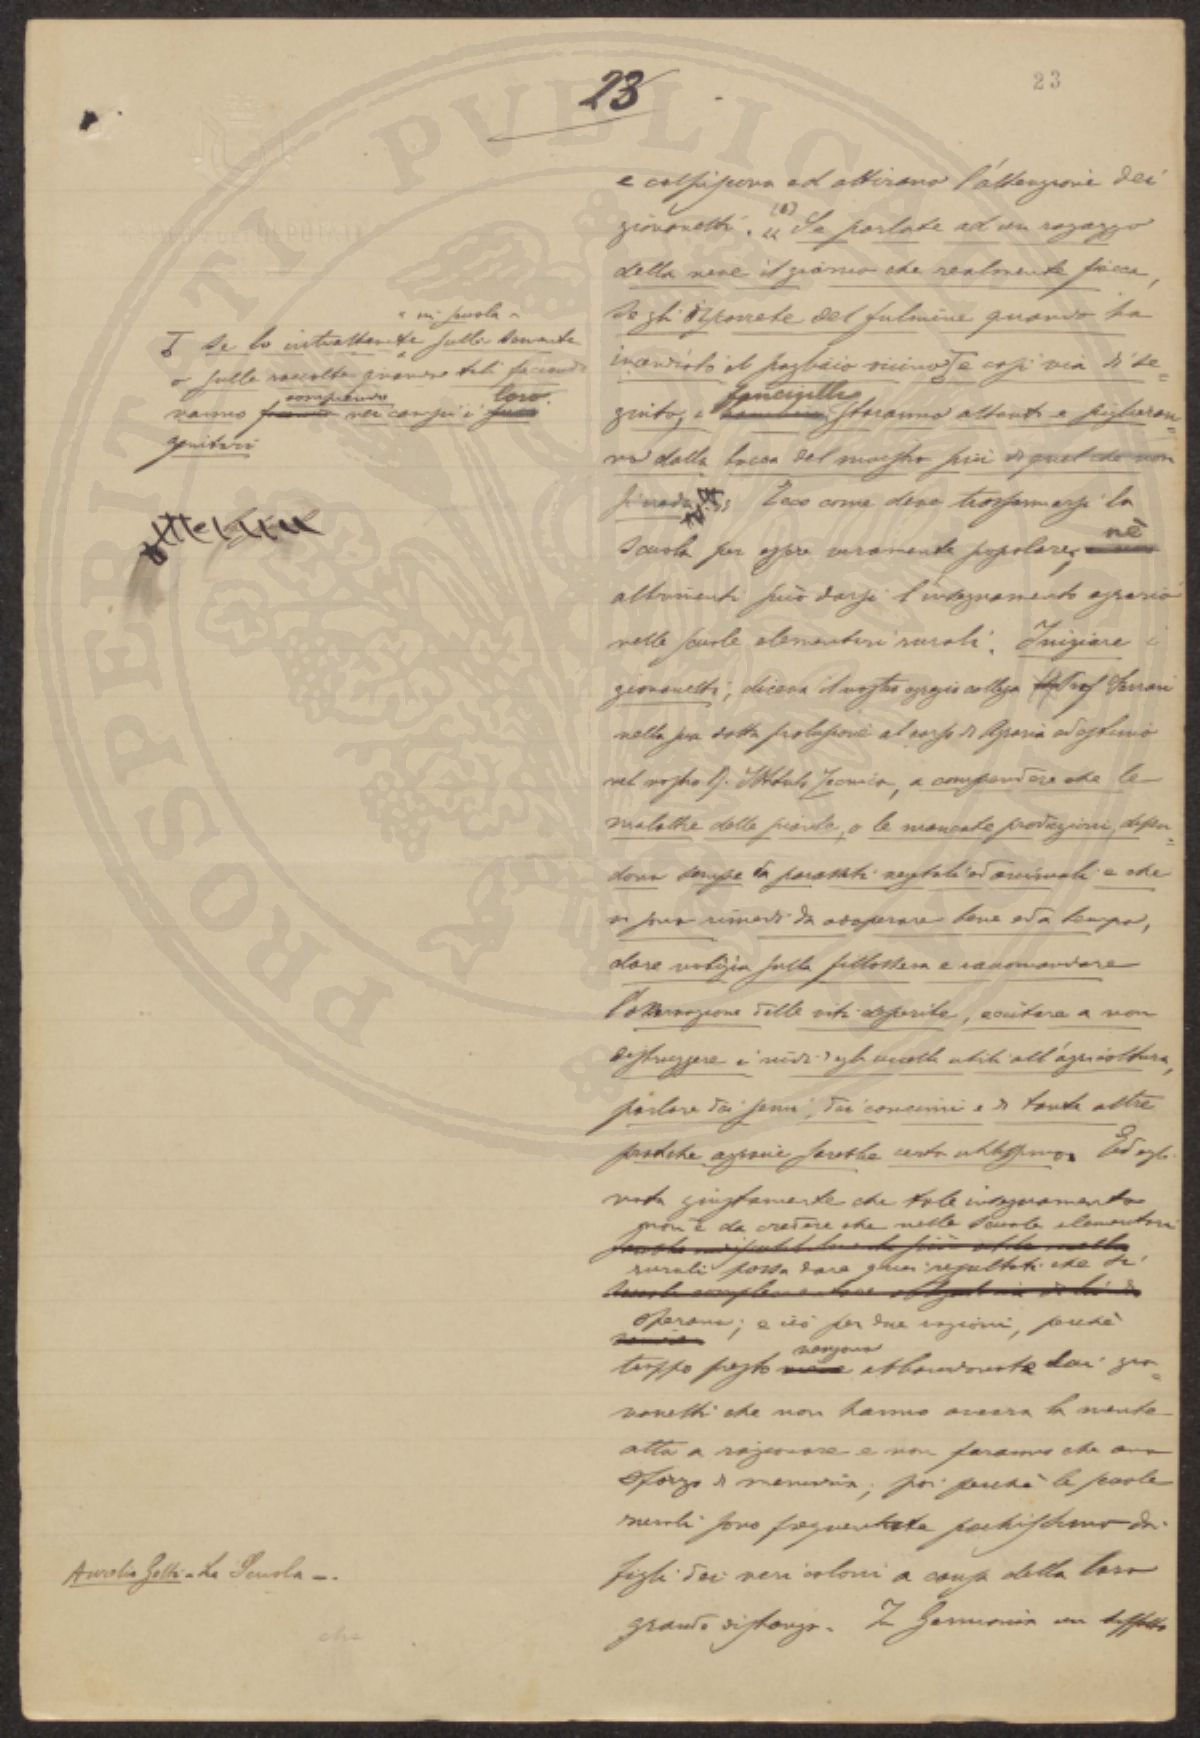 23
23
e colpiscono ed attirano l'attenzione dei
giovanetti. (1) "Se parlate ad un ragazzo
della neve il giorno che realmente fiocca,
se gli discorrete del fulmine quando ha
incendiato il pagliaio vicino, e così via di se-
guito, i fanciulli staranno attenti e piglieran-
no dalla bocca del maestro più di quel che non
si creda." Ecco come deve trasformarsi la
scuola per essere veramente popolare; nè
altrimenti può darsi l'insegnamento agrario
nelle scuole elementari rurali. Iniziare i
giovanetti, diceva il vostro egregio collega Prof Ferrari
nella sua dotta prolusione al corso di Agraria ed estimo
nel nostro R. Istituto Tecnico, a comprendere che le
malattie delle piante, o le mancate produzioni, dipen-
dono sempre da parassiti vegetali ed animali e che
vi sono rimedi da adoperare bene ed a tempo,
dare notizia sulla fillossera e raccomandare
l'osservazione delle viti deperite, eccitare a non
distruggere i nidi degli uccelli utili all'agricoltura,
parlare dei semi, dei concimi e di tante altre
pratiche agrarie sarebbe certo utilissimo. Ed egli
nota giustamente che tale insegnamento
non è da credere che nelle scuole elementari
rurali possa dare quei resultati che si
sperano; e ciò per due ragioni, perchè
troppo presto vengono abbandonate dai gio-
vanetti che non hanno ancora la mente
atta a ragionare e non faranno che uno
sforzo di memoria; poi perchè le scuole
rurali sono frequentate pochissimo dai
figli dei veri coloni a causa della loro
grande distanza. In Germania un
" in scuola "
se lo intrattenete sulle semente
o sulla raccolta quando tali faccende
vanno compiendo nei campi i loro
genitori
Aurelio Gotti - La Scuola -.
PROSPERITATI PVBLICAE